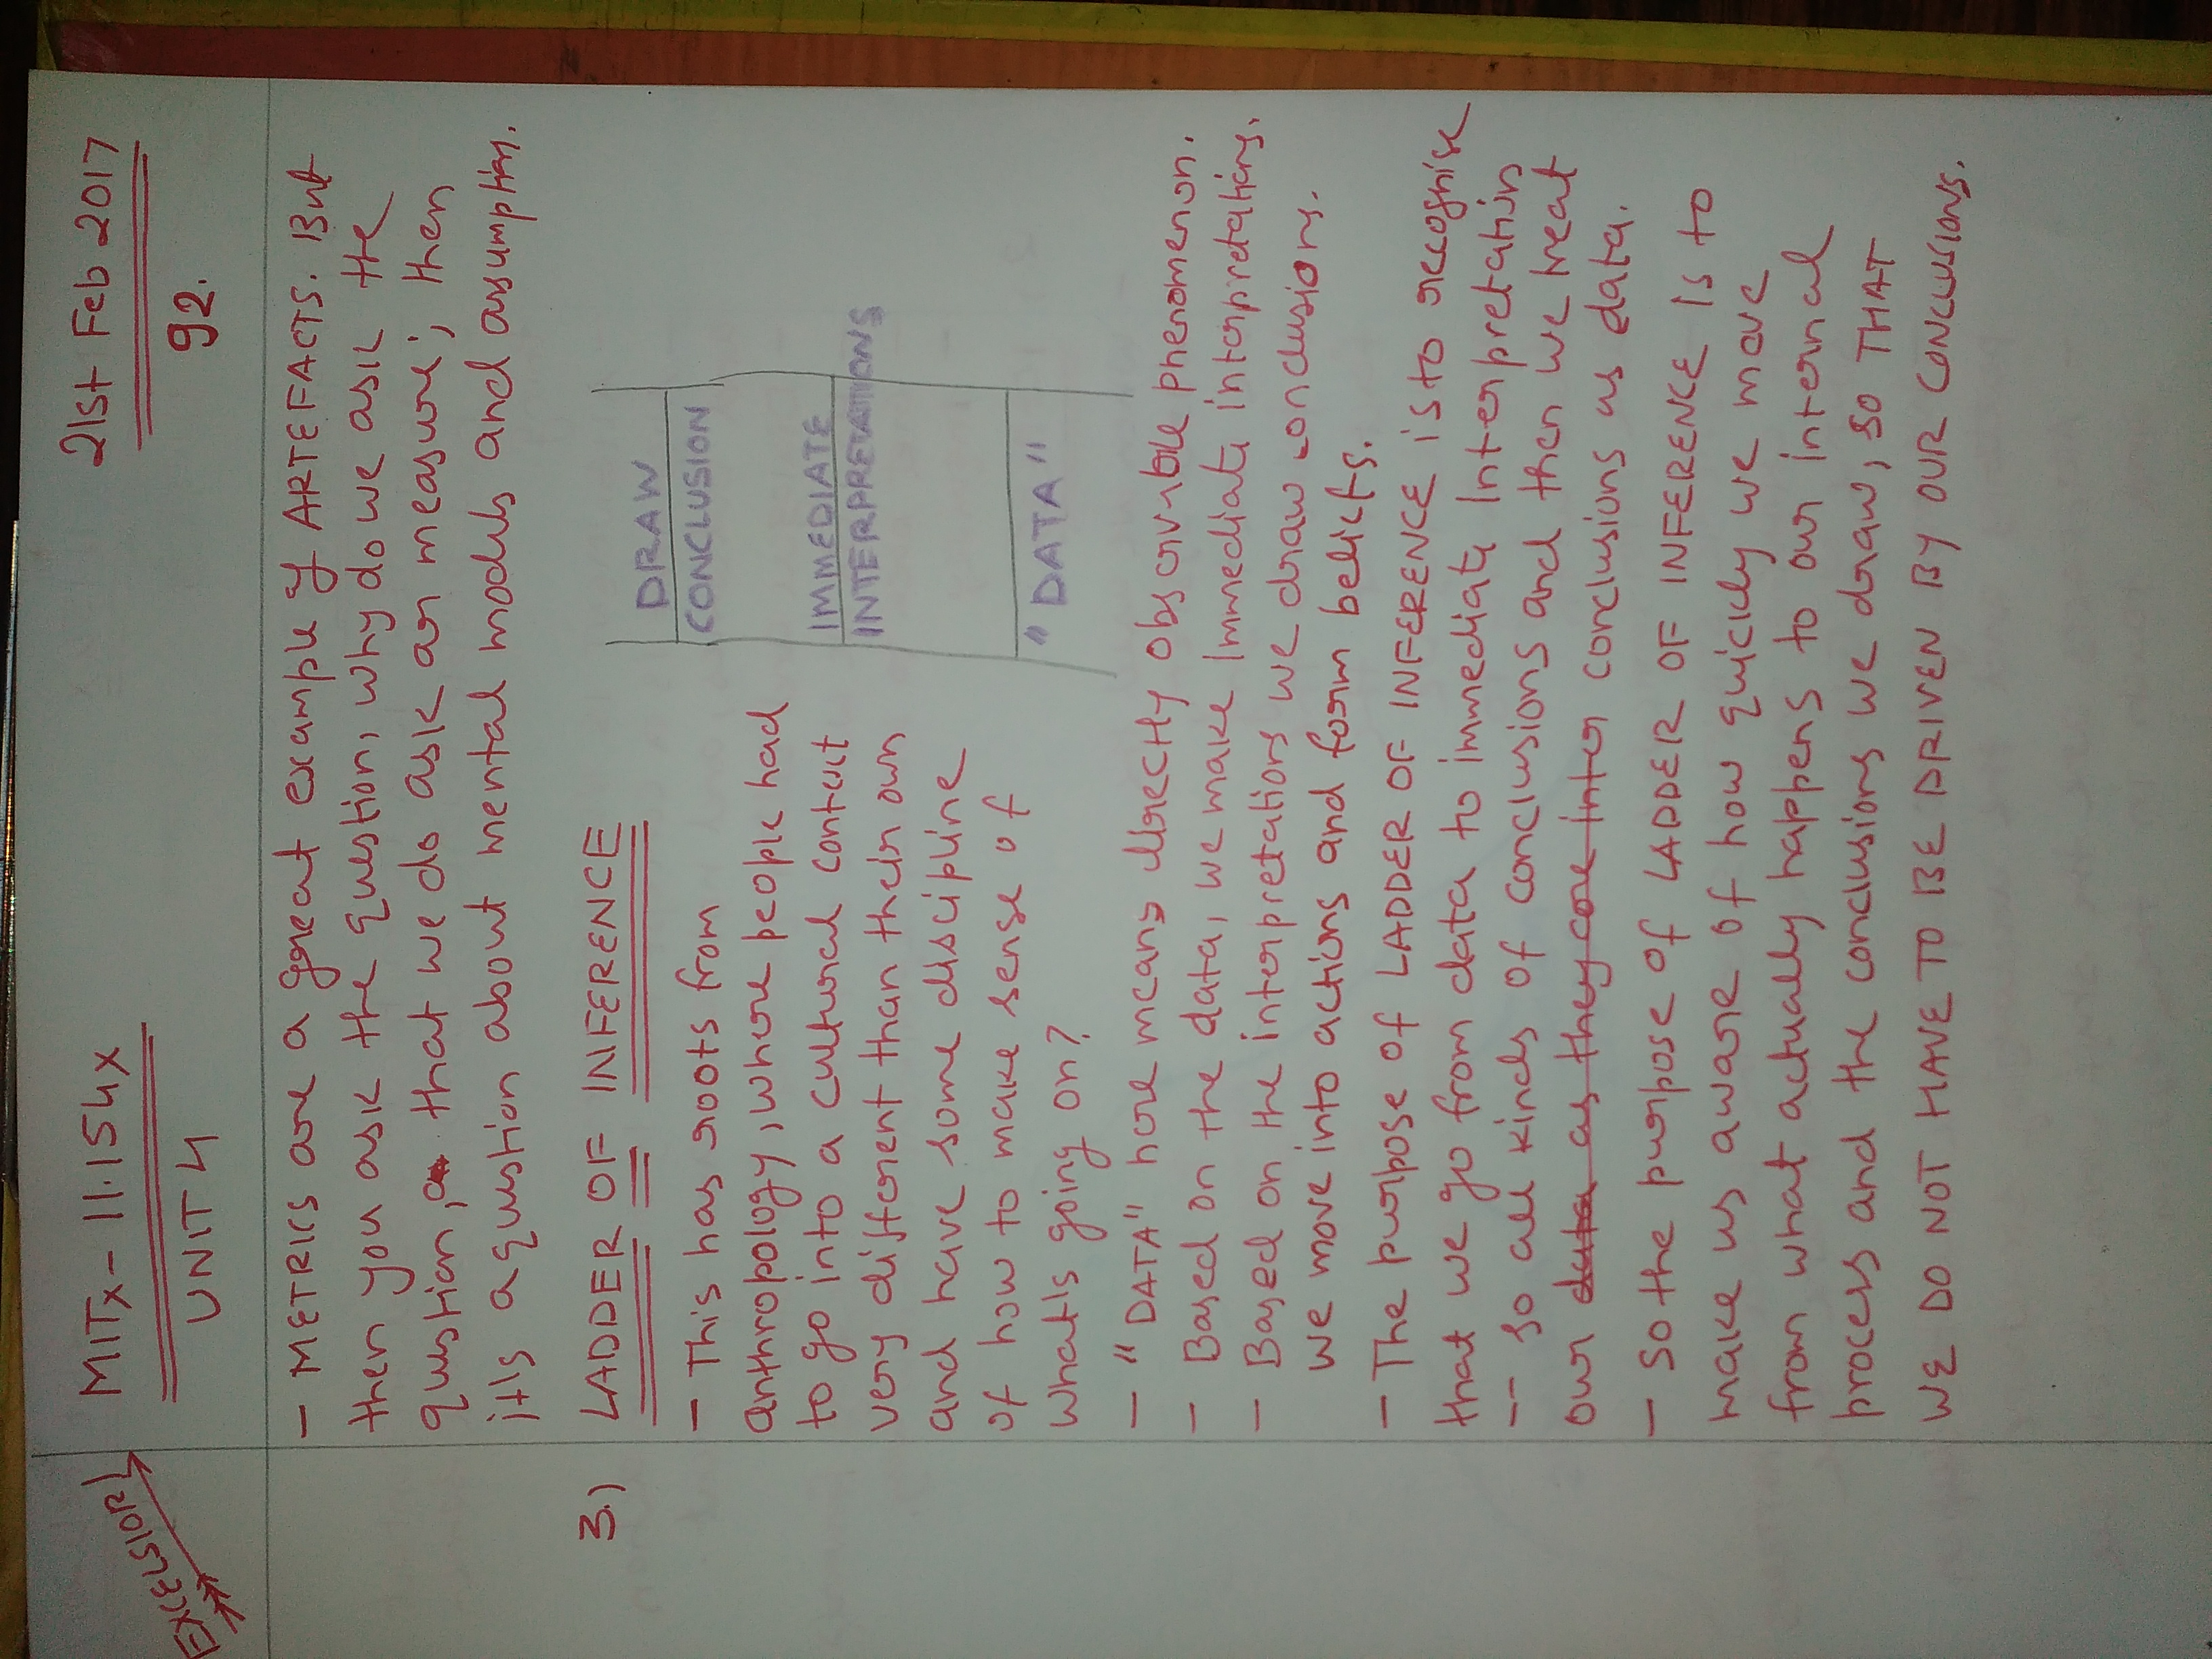 EXCELSIOR!
MITx - 11.154x
21st Feb 2017
UNIT 4
92.
- METRICS are a great example of ARTEFACTS. But
then you ask the question, why do we ask the
question, that we do ask or measure; then
it's a question about mental models and assumption.
3.) LADDER OF INFERENCE
- This has roots from
anthropology, where people had
to go into a cultural context
very different than their own
and have some discipline
of how to make sense of
what's going on?
DRAW
CONCLUSION
IMMEDIATE
INTERPRETATIONS
"DATA"
- "DATA" here means directly observable phenomenon.
- Based on the data, we make Immediate interpretations.
- Based on the interpretations we draw conclusions.
we move into actions and form beliefs.
- The purpose of LADDER OF INFERENCE is to recognise
that we go from data to immediate Interpretation
-- so all kinds of conclusions and then we treat
our data as they are inter conclusions as data.
- So the purpose of LADDER OF INFERENCE Is to
make us aware of how quickly we move
from what actually happens to our internal
process and the conclusions we draw, so THAT
WE DO NOT HAVE TO BE DRIVEN BY OUR CONCLUSIONS.